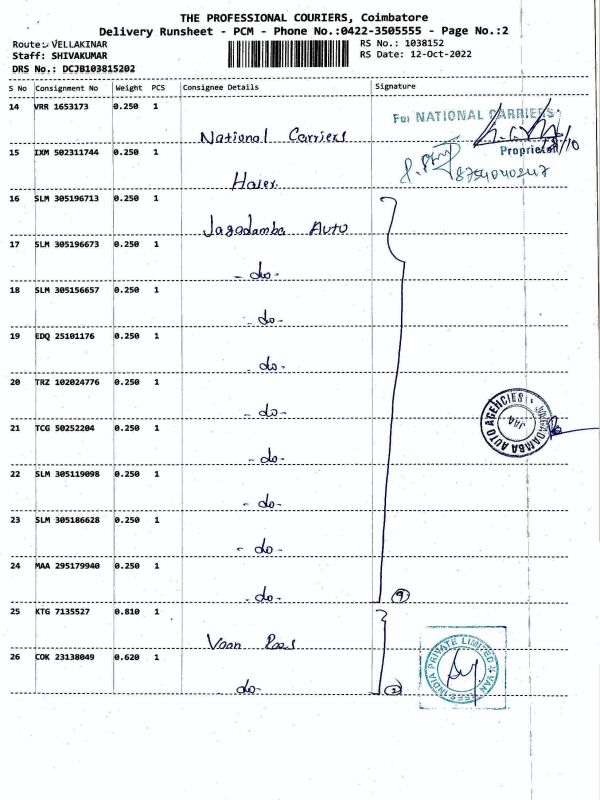 THE PROFESSIONAL COURIERS, Coimbatore
Delivery Runsheet - PCM - Phone No.:0422-3505555 - Page No.:2
Route:- VELLAKINAR RS No.: 1038152
Staff: SHIVAKUMAR RS Date: 12-Oct-2022
DRS No.: DCJB103815202
S No Consignment No Weight PCS Consignee Details Signature
14 VRR 1653173 0.250 1
For NATIONAL CARRIERS
National Carriers
Proprietor
15 IXM 502311744 0.250 1
Haier
16 SLM 305196713 0.250 1
Jagadamba Auto
17 SLM 305196673 0.250 1
- do -
18 SLM 305156657 0.250 1
- do -
19 EDQ 25101176 0.250 1
- do -
20 TRZ 102024776 0.250 1
- do -
21 TCG 50252204 0.250 1
- do -
JAGADAMBA AUTO AGENCIES
22 SLM 305119098 0.250 1
- do -
23 SLM 305186628 0.250 1
- do -
24 MAA 295179940 0.250 1
- do - 9
25 KTG 7135527 0.810 1
Vaan
26 COK 23138049 0.620 1
do - 2
INDIA PRIVATE LIMITED